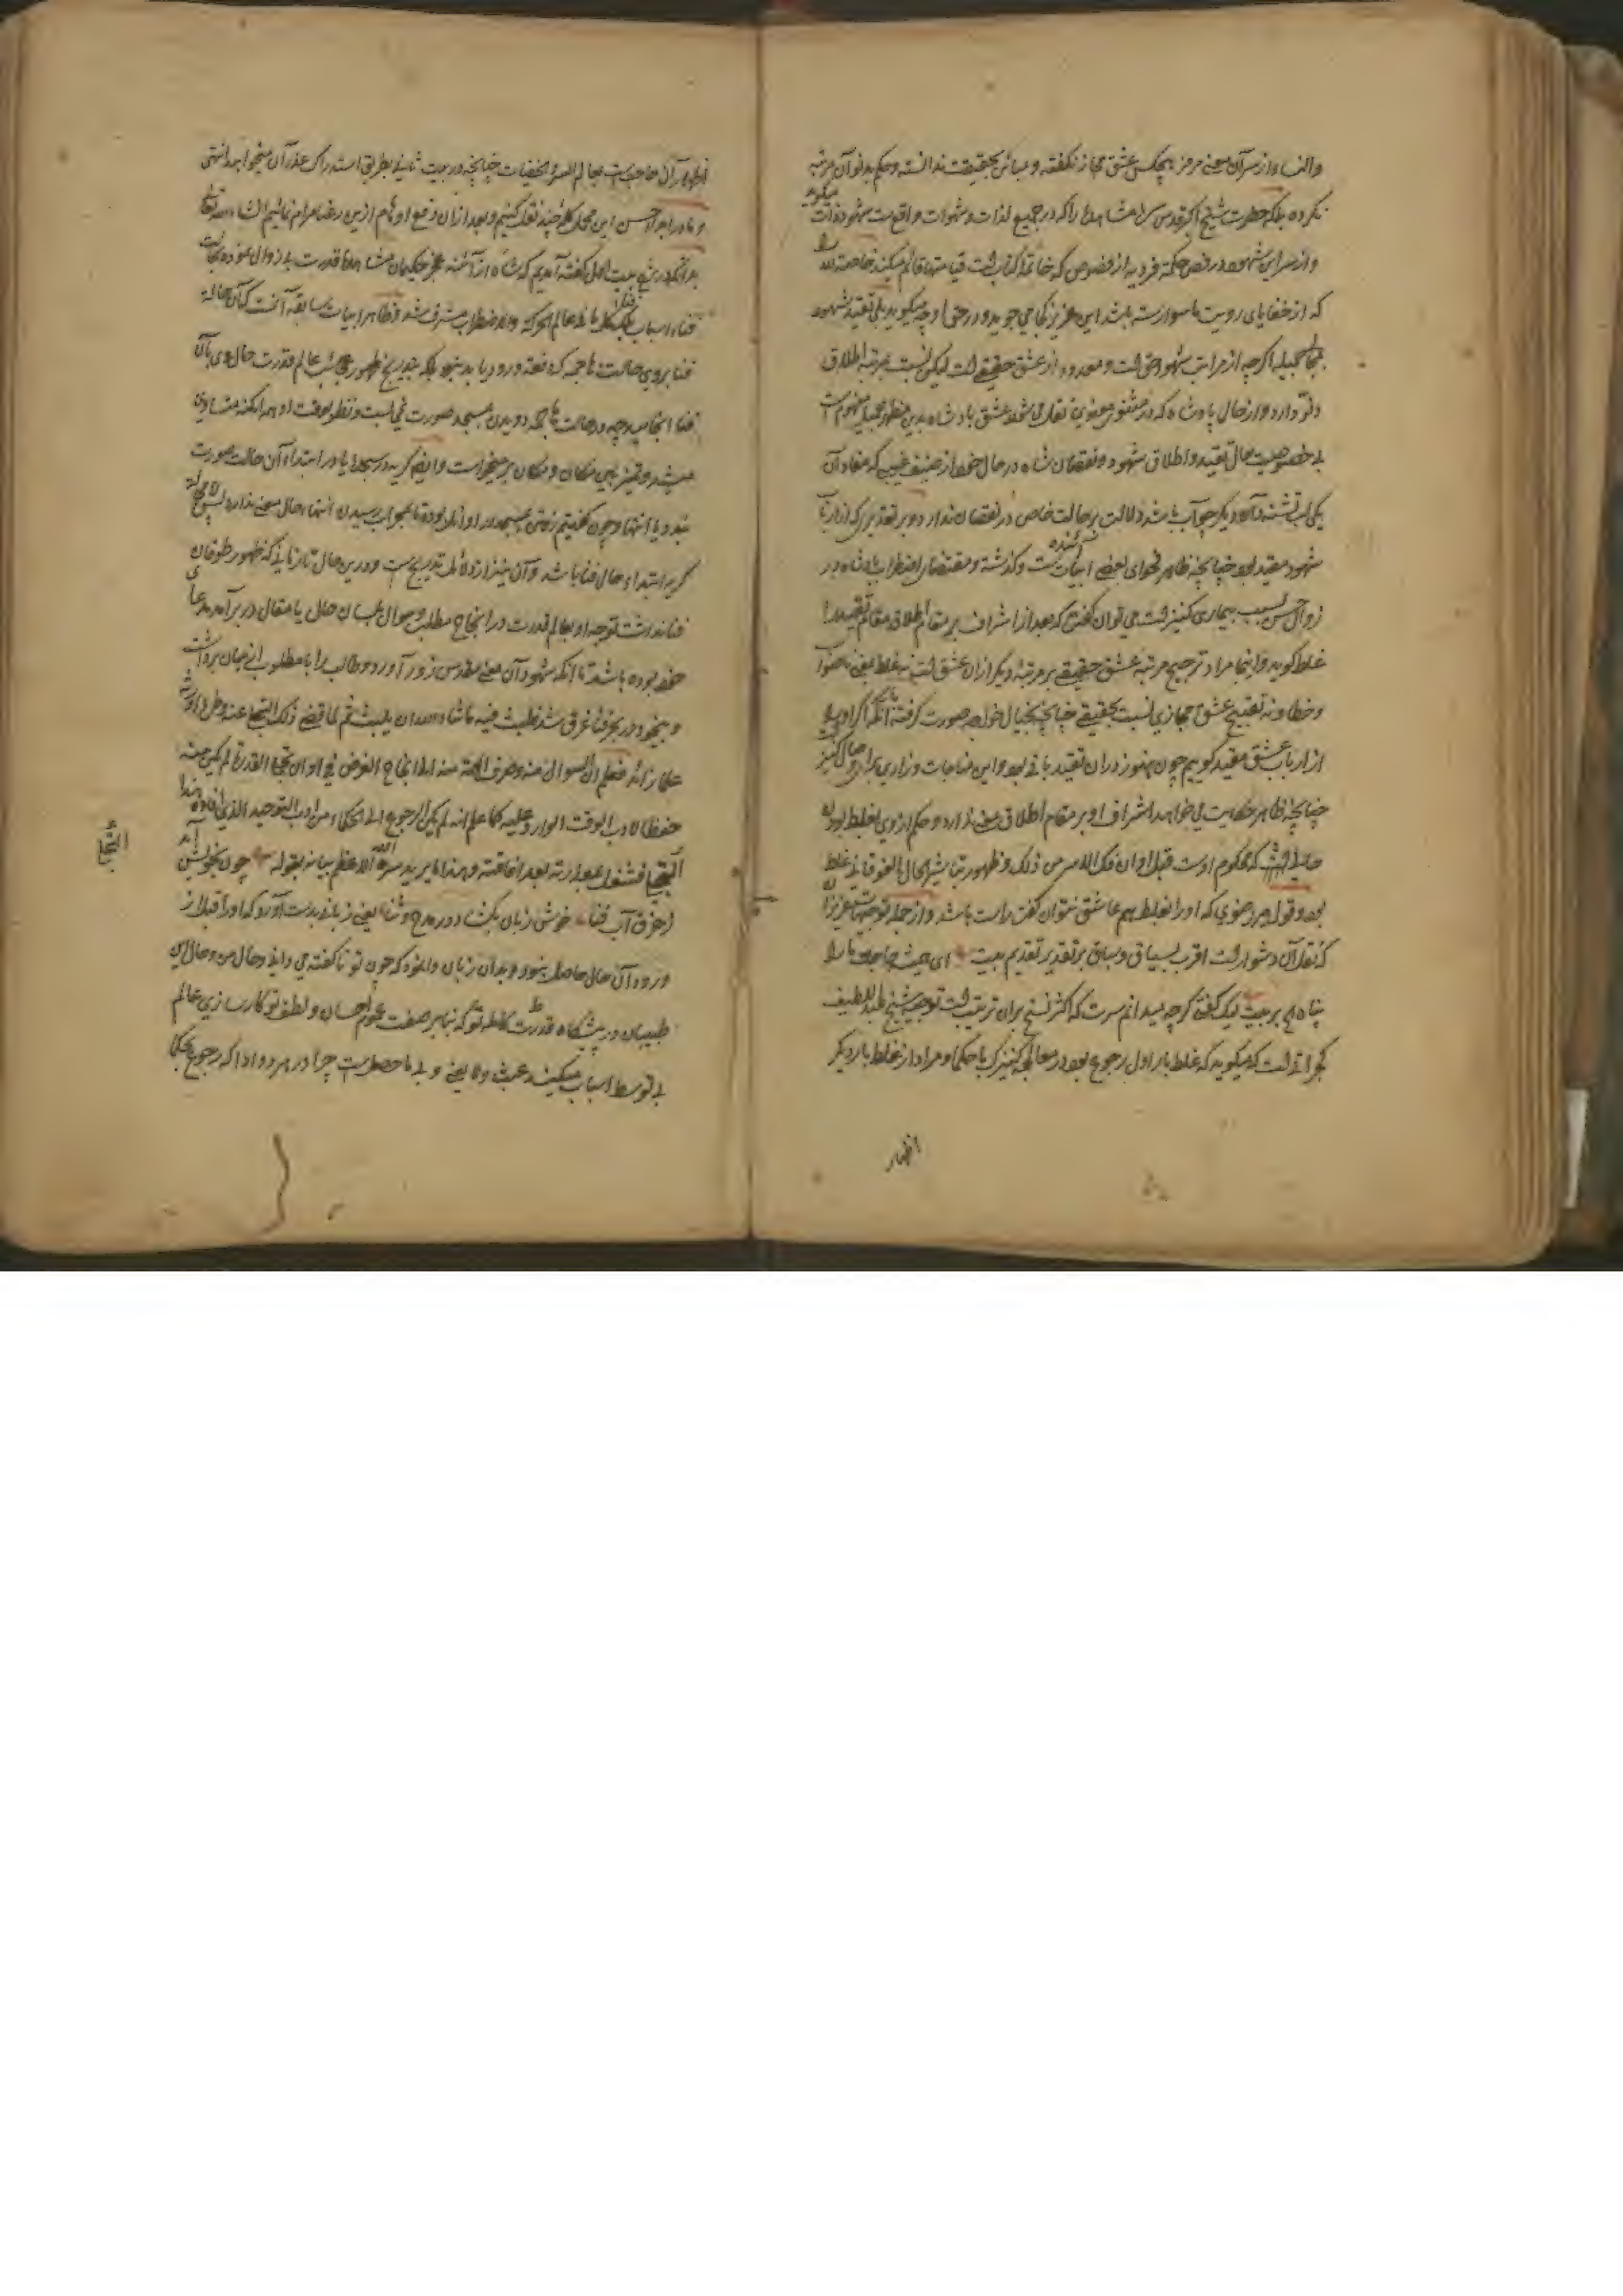 والف واز سر آن معنی مرمز هیچکس عشق مجاز نگفته و مبائن حقیقت ندانسته و حکم بدنو آن مرتبه
نکرده بلکه حضرت شیخ اکبر قدس سره مشاهدها را که در جمیع لذات و شهوات واقع است شهود ذات میگوید
و از سر این شهود در فص حکمة فردیه از فصوص که خاتمه کتاب است قیامتها قائم میکند خاصه
که از خفایای رویت ماسوا رسته باشد این عزیز کجا می جوید و در حق او چه میگوید بلی تقید شهود
بمجالی جمیله اگرچه از مراتب شهود حق است و معدود از عشق حقیقی است لیکن نسبت بمرتبه اطلاق
دارد و از حال پادشاه که در مثنوی معنوی نقل می شود عشق پادشاه بدین مظهر جمیل مفهوم است
بی خصوصیت حال تقید و اطلاق شهود و نقصان شاه در حال خود از ضیف غیبی که مفاد آن
یکی لب تشنه و آن دیگر چو آب باشد دلالت بر حالت خاص در نقصان ندارد و بر تقدیر که از ارباب
شهود مقید بود چنانچه ظاهر فحوای بعضی ابیات آئنده است و گذشته و مقتضای اضطراب پادشاه در
زوال حسن بسبب بیماری کنیزک است می توان گفت که بعد از اشراف بر مقام اطلاق مقام تقیید را
غلط گوید و اینجا مراد ترجیح مرتبه عشق حقیقی بر مرتبه دیگر ازان عشق است نه غلط بمعنی ناصواب
و خطا و نه تقبیح عشق مجازی نسبت بحقیقی چنانچه بخیال خواجه صورت گرفته با آنکه اگر او را
از ارباب عشق مقید گوییم چون هنوز دران تقید باقی بود و این مناجات و زاری برای وصال کنیز
چنانچه ظاهر حکایت می خواهد اشراف او بر مقام اطلاق معنی ندارد و حکم از وی بغلط بودن
که محکوم اوست قبل اوان فک الاسر من ذلک و ظهور تباشیر الحال الفوقانی غلط
بود و قول میر رضوی که او را بغلط هم عاشق نتوان گفت راست باشد و از جمله توجیهات عزیزان
که نقل آن دشوار است اقرب بسیاق و سباق بر تقدیر تقدیم بیت ای همیشه حاجت ما را
پناه هم بر بیت لیک گفتی گرچه میدانم سرت که اکثر نسخ بران ترتیب است توجیه شیخ عبد اللطیف
گجراتی است که میگوید که غلط بار اول رجوع بود در معالجه کنیزک با حکما و مراد از غلط بار دیگر
اظهار
اظهار آن حاجت است بعالم السر و الخفیات چنانچه در بیت ثانی بطریق استدراک عذر آن میخواهد انتهی
و ما در ابراد حسن این محل کلمه چند نقل کنیم و بعد ازان رفع اوهام ازین رضا مرام نمائیم انشاء الله تعالی
بدانکه در شرح بیت اول گفته آمدیم که شاه از آئنه عجز حکیمان مشاهده قدرت بی زوال نموده بحالت
فناء اسباب بلکه کل بالم الحرکه و الاضطراب مشرف شد و ظاهر ابیات سابقه آنست که آن حالت
فنا بروی حالت ناجمه که دفعة ورود یابد نبود بلکه بتدریج ظهور عجائب عالم قدرت حال وی بآن
فنا انجامید و چه در حالت ناجمه دویدن بمسجد صورت نمی بست و نظر بوقت او همه امکنه متساوی
میشد و تمیز بین مکان و مکان بر میخواست و ایضا گریه در سجده یا در ابتداء آن حالت صورت
بندد یا انتها و چون گفتیم رفتن بمسجد در اوائل بوده تا بمحراب رسیدن انتهاء حال معنی ندارد پس لا محاله
گریه ابتداء حال فنا باشد و آن نیز از دلائل تدریج است و درین حال تا زمانی که ظهور طوفان
فنا نداشت توجه او بعالم قدرت در انجاح مطلب و سوال بلسان حال یا مقال در بر آمد مدعای
حفظ بوده باشد تا آنکه شهود آن معنی مقدس زور آورد و طالب را با مطلوب از میان برداشت
و بیخود در بحر فنا غرق شد فلبث فیه ما شاء الله ان یلبث ثم لما قضی ذلک التجلی عنه وطره اورثه
علما زائدا فعلم ان السوال منه و صرف الهمة منه الی انجاح الغرض فی اوان تجلی القدرة لم یکن منه
حفظا لادب الوقت الوارد علیه کما علم انه لم یکن الرجوع الی الحکماء من ادب التوحید الذی افاده هذا
التجلی فشغل بعبارته بعد افاقته و هذا ما یرید سره الله الاعظم بیانه بقوله چون بخویش آمد
ز غرق آب فنا خوش زبان بکشاد در مدح و ثنا یعنی زبانی بدست آورد که او را قبل از
ورود آن حال حاصل نبود و بدان زبان وانمود که چون تو ناگفته می دانی و حال من و حال این
طبیبان در پیشگاه قدرت کامله تو که بنا بر صفت عموم احسان و لطف تو کارسازی عالم
بی توسط اسباب میکند عبث و لا یعنی و بی ما حصل است چرا در هر دو ادا که رجوع بحکما
التجلی